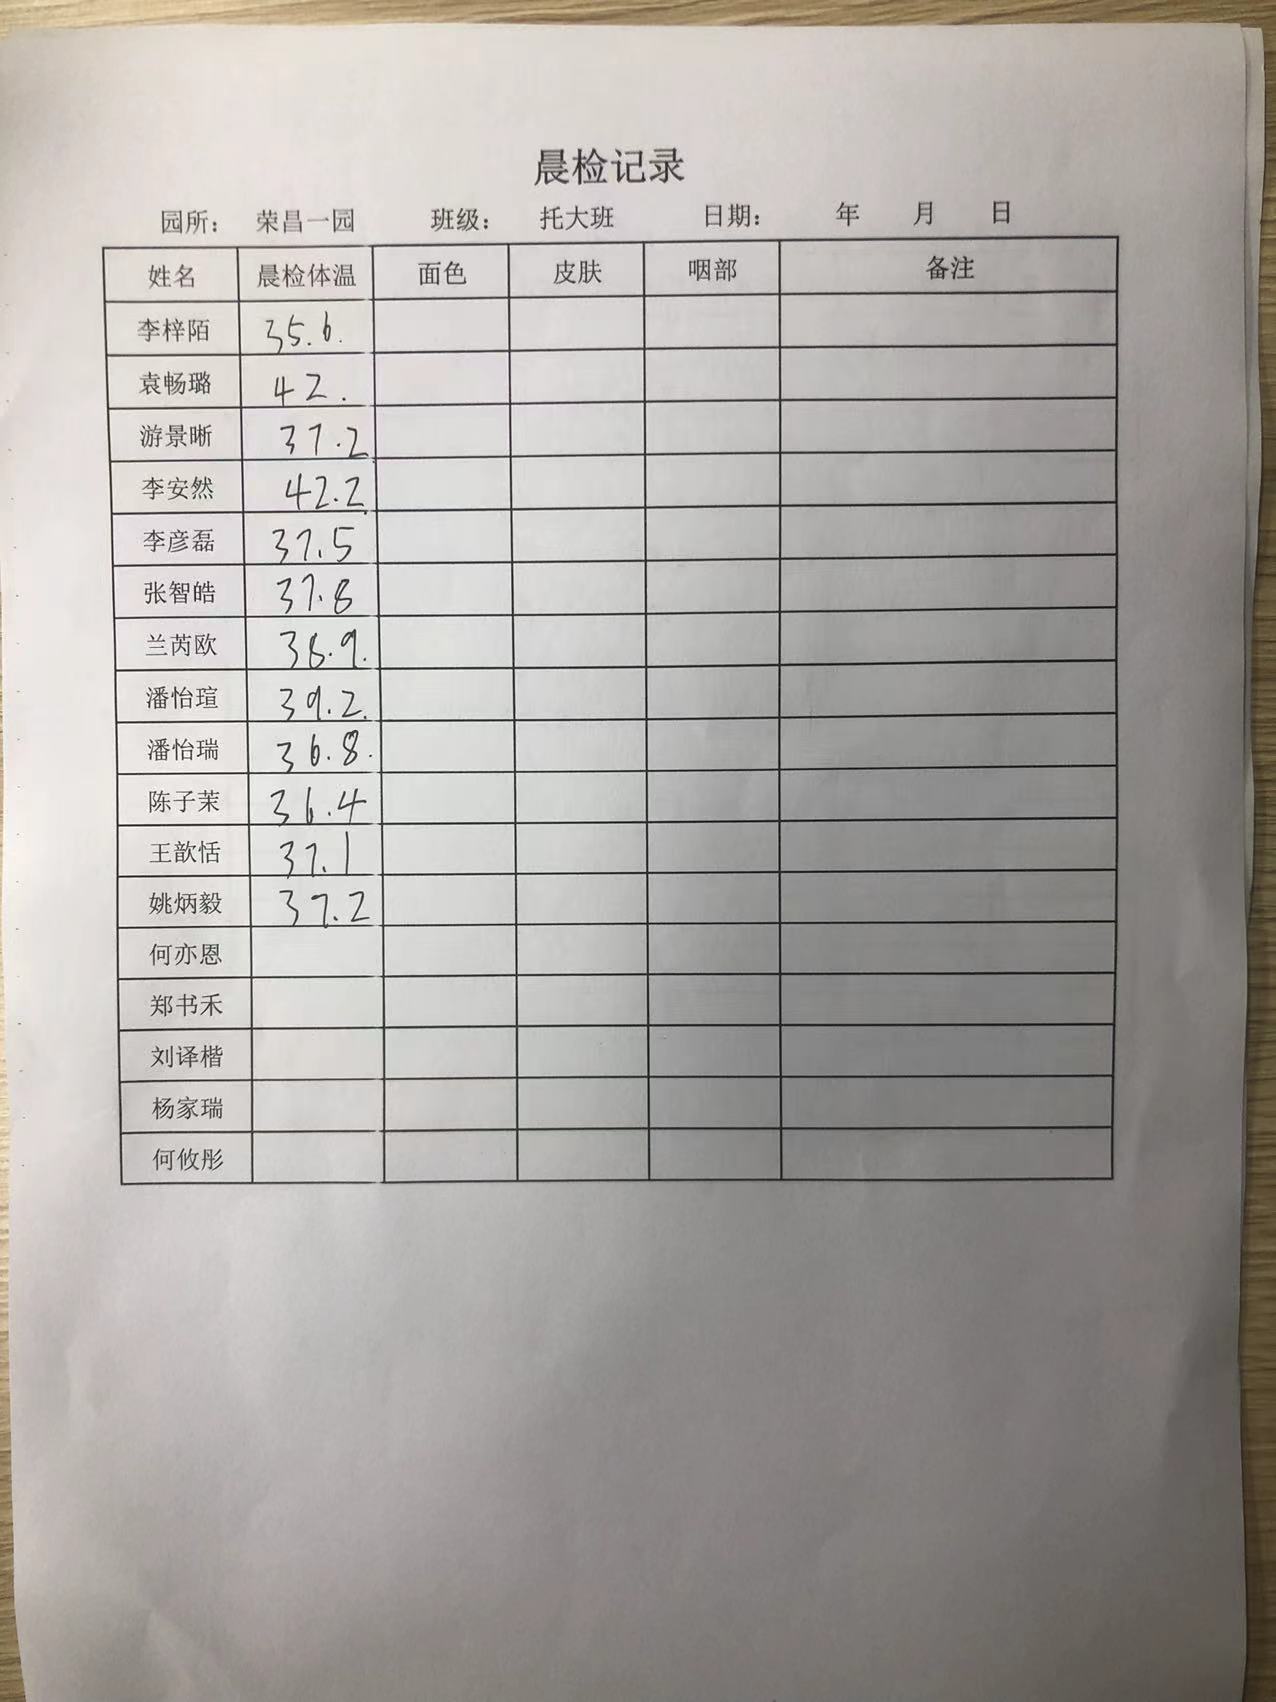 晨检记录
园所： 荣昌一园 班级： 托大班 日期： 年 月 日
姓名 晨检体温 面色 皮肤 咽部 备注
李梓陌 35.6.
袁畅璐 42.
游景晰 37.2
李安然 42.2
李彦磊 37.5
张智皓 37.8
兰芮欧 36.9.
潘怡瑄 39.2.
潘怡瑞 36.8.
陈子茉 36.4
王歆恬 37.1
姚炳毅 37.2
何亦恩
郑书禾
刘译楷
杨家瑞
何攸彤